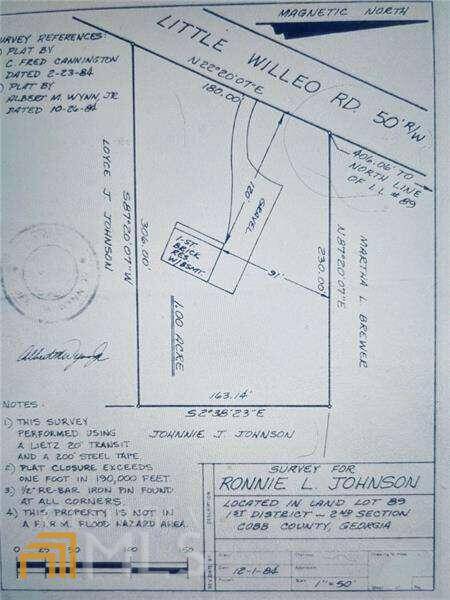 MAGNETIC NORTH
SURVEY REFERENCES:
1) PLAT BY
C. FRED CANNINGTON
DATED 2-23-84
2) PLAT BY
ALBERT M. WYNN, JR.
DATED 10-26-84
LITTLE WILLEO RD. 50' R/W
N22°20'07"E
180.00'
406.06' TO
NORTH LINE
OF L.L. # 89
LOYCE J. JOHNSON
S87°20'07"W
306.00'
120'
GRAVEL
1-ST.
BRICK
RES.
W/BSMT
91'
230.00'
N87°20'07"E
MARTHA L. BREWER
1.00 ACRE
163.14'
S2°38'23"E
JOHNNIE J. JOHNSON
NOTES:
1) THIS SURVEY
PERFORMED USING
A LIETZ 20" TRANSIT
AND A 200' STEEL TAPE.
2) PLAT CLOSURE EXCEEDS
ONE FOOT IN 190,000 FEET.
3) 1/2" RE-BAR IRON PIN FOUND
AT ALL CORNERS.
4) THIS PROPERTY IS NOT IN
A F.I.R.M. FLOOD HAZARD AREA.
SURVEY FOR
RONNIE L. JOHNSON
LOCATED IN LAND LOT 89
1ST DISTRICT - 2ND SECTION
COBB COUNTY, GEORGIA
12-1-84
1"=50'
0 25 50 100 150
MLS